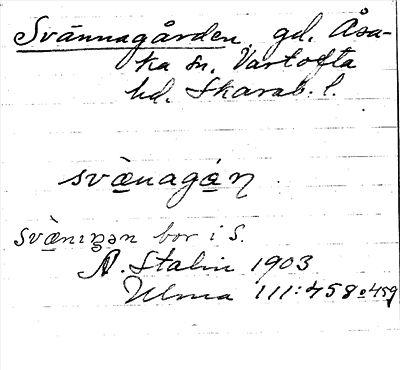 Svännagården gd. Åsa-
ka sn. Vartofta
hd. Skarab. l.
svæ̀nagán
svæ̀niŋən bor i S.
A. Stalin 1903
Ulma 111:458 o 459